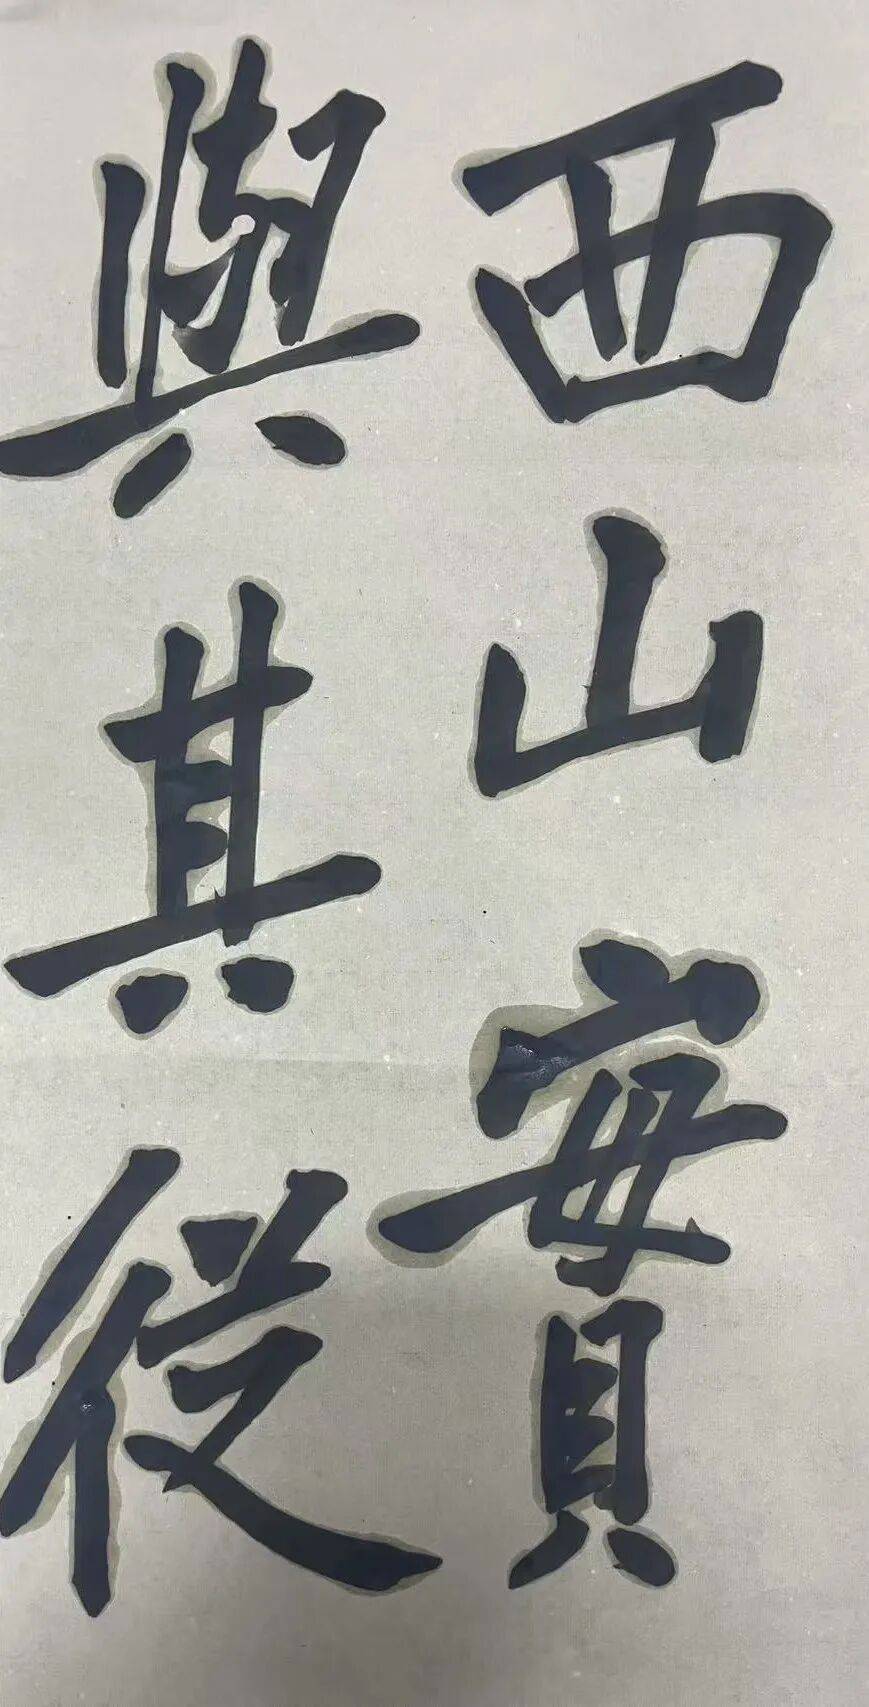 西山實
與其從